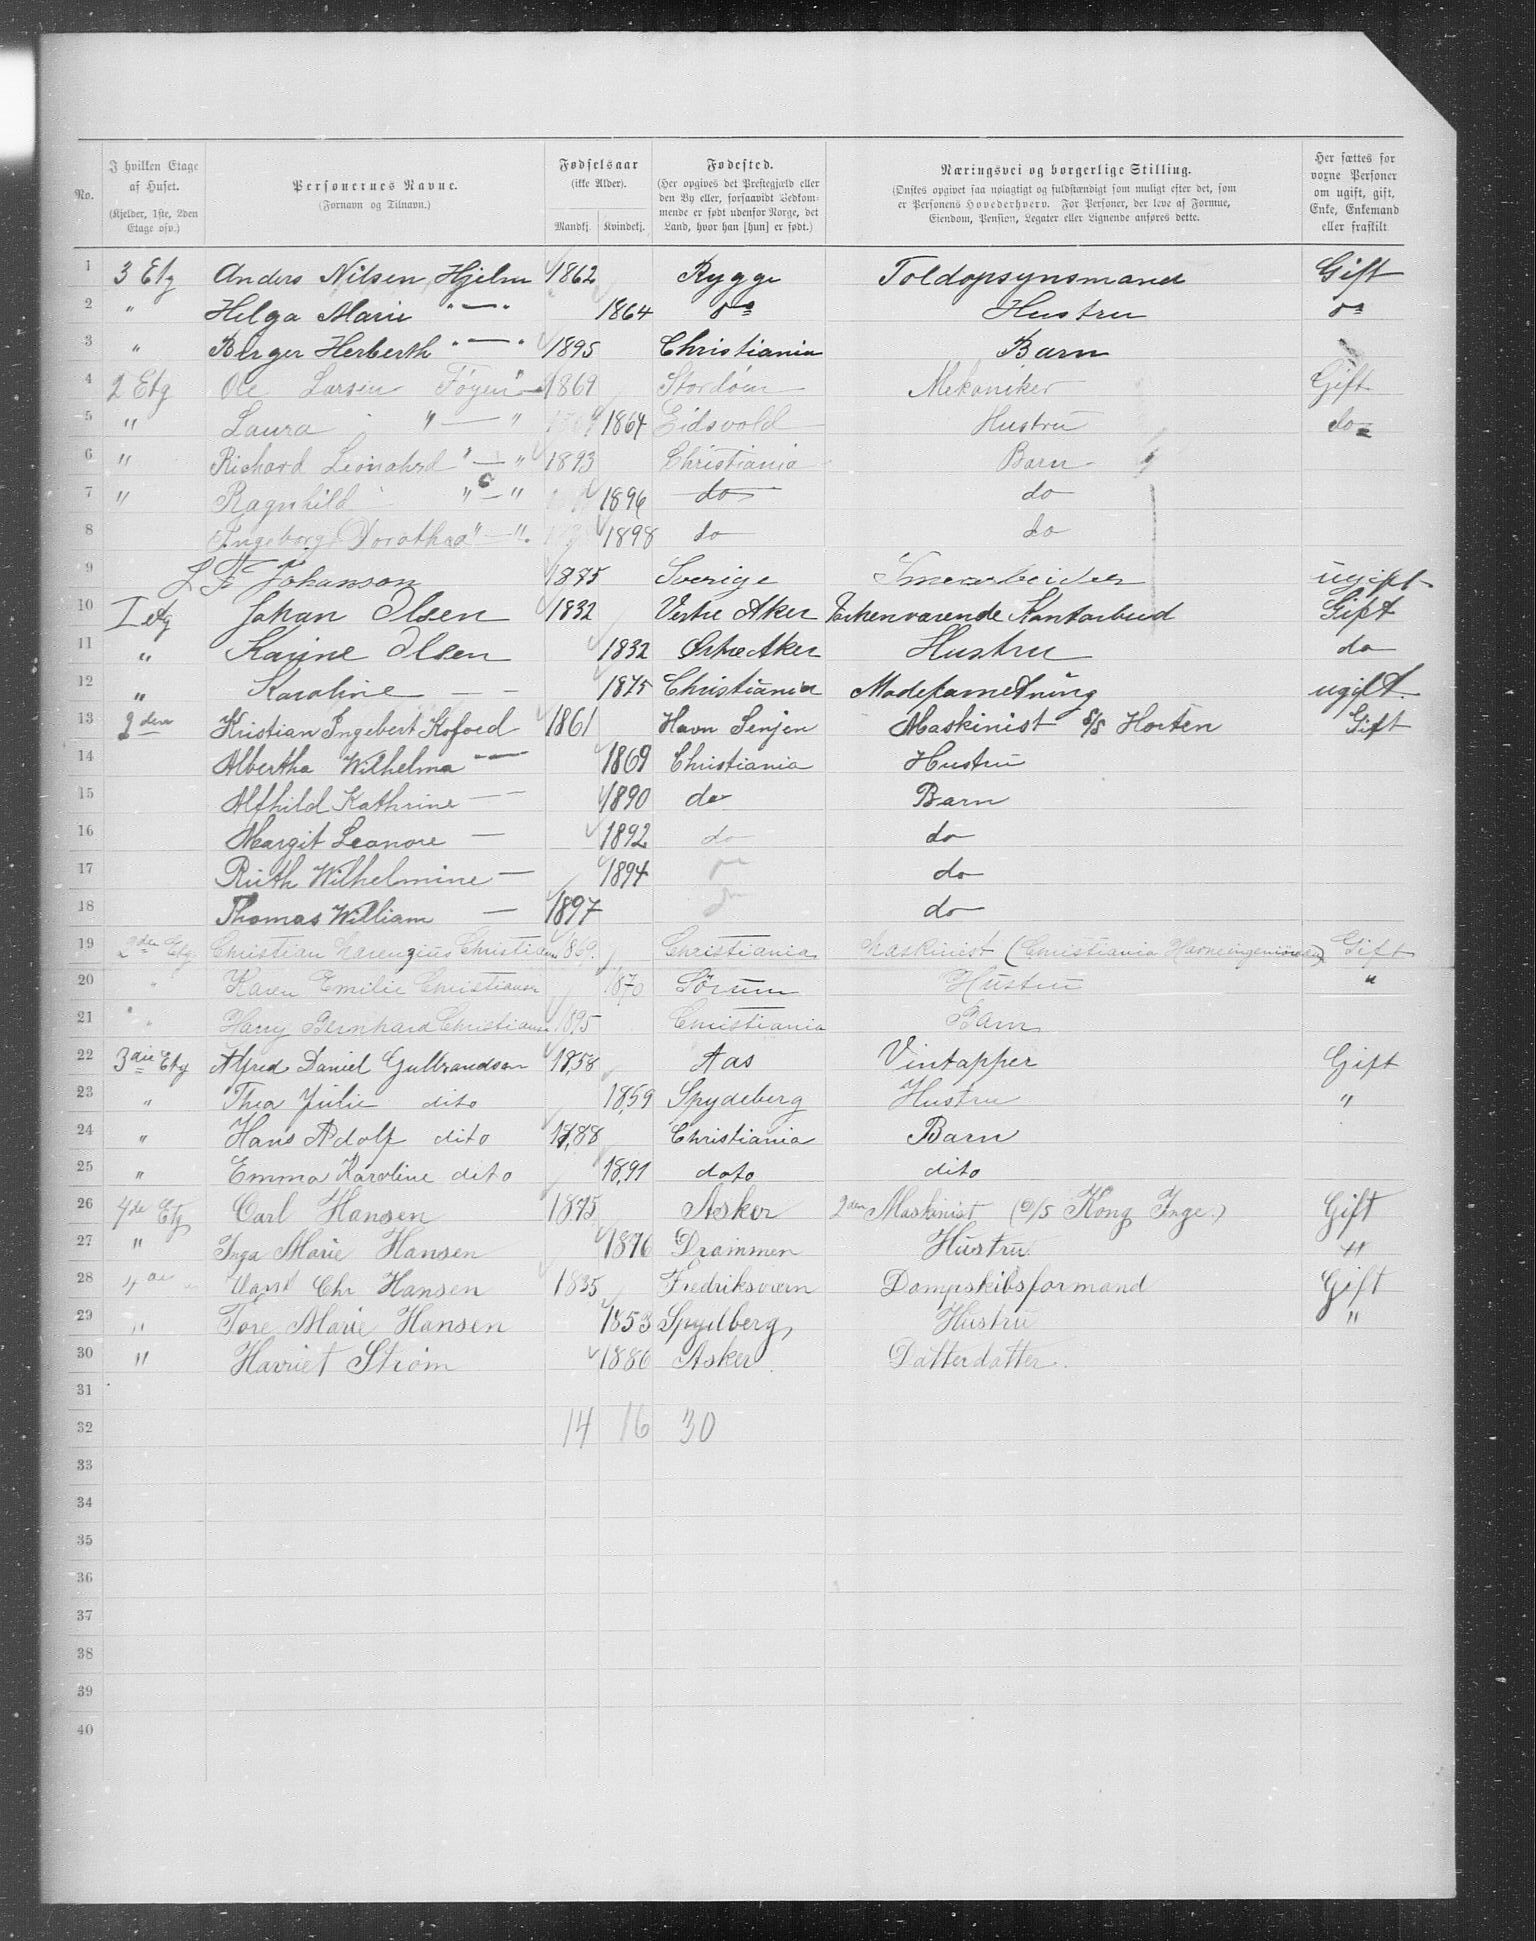 No. | I hvilken Etage af Huset. (Kjelder, 1ste, 2den Etage osv.) | Personernes Navne. (Fornavn og Tilnavn.) | Fødselsaar (ikke Alder). Mandkj. Kvindekj. | Fødested. (Her opgives det Prestegjæld eller den By eller, forsaavidt Vedkommende er født udenfor Norge, det Land, hvor han [hun] er født.) | Næringsvei og borgerlige Stilling. (Ønskes opgivet saa nøiagtigt og fuldstændigt som muligt efter det, som er Personens Hovederhverv. For Personer, der leve af Formue, Eiendom, Pension, Legater eller Lignende anføres dette. | Her sættes for voxne Personer om ugift, gift, Enke, Enkemand eller fraskilt
1 3 Etg Anders Nilsen Hjelm 1862 Rygge Toldopsynsmand Gift
2 " Helga Marie " — " 1864 do Hustru do
3 " Birger Herberth " — " 1895 Christiania Barn
4 2 Etg Ole Larsen Føyen 1869 Mekaniker Gift
5 " Laura " — " 1864 Eidsvold Hustru do
6 " Richard Leonahrd " — " 1893 Christiania Barn
7 " Ragnhild " — " 1896 do do
8 Ingeborg Dorothea " — " 1898 do do
9 L F Johanson 1875 Sverige ugift
10 I etg Johan Olsen 1832 Vestre Aker Forhenværende Kontorbud Gift
11 " Karine Olsen 1832 Østre Aker Hustru do
12 " Karoline — — 1875 Christiania ugift
13 2den Kristian Ingebert Kofoed 1861 Havn Senjen Maskinist S/S Horten Gift
14 Albertha Wilhelma — 1869 Christiania Hustru
15 Alfhild Kathrine — — 1890 do Barn
16 Margit Leonore — 1892 do do
17 Ruth Wilhelmine — 1894 do do
18 Thomas William — 1897 do do
19 2den Etg Christian Laurenzius Christiansen 1869 Christiania Maskinist (Christiania Havneingeniør) Gift
20 " Karen Emilie Christiansen 1870 Sörum Hustru "
21 " Harry Bernhard Christiansen 1895 Christiania Barn
22 3die Etg Alfred Daniel Gulbrandsen 1858 Aas Vintapper Gift
23 " Thea Julie dito 1859 Spydeberg Hustru "
24 " Hans Adolf dito 1888 Christiania Barn
25 " Emma Karoline dito 1891 doto dito
26 4de Etg Carl Hansen 1875 Asker 2den Maskinist (D/S Kong Inge.) Gift
27 " Inga Marie Hansen 1876 Drammen Hustru "
28 4de Chr Hansen 1835 Fredriksværn Dampskibsformand Gift
29 " Tore Marie Hansen 1853 Spydberg Hustru "
30 " Harriet Strøm 1886 Asker Datterdatter.
31
32 14 16 30
33
34
35
36
37
38
39
40